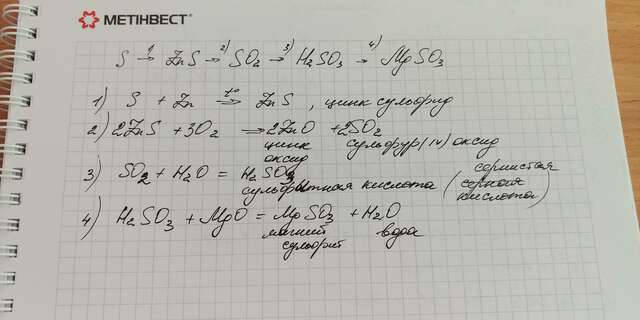 МЕТІНВЕСТ®
S →¹⁾ ZnS →²⁾ SO₂ →³⁾ H₂SO₃ →⁴⁾ MgSO₃
1) S + Zn →ᵗ° ZnS , цинк сульфид
2) 2ZnS + 3O₂ → 2ZnO + 2SO₂
цинк оксид сульфур (IV) оксид
3) SO₂ + H₂O = H₂SO₃ сернистая
сульфитная кислота (серная кислота)
4) H₂SO₃ + MgO = MgSO₃ + H₂O
магний сульфит вода